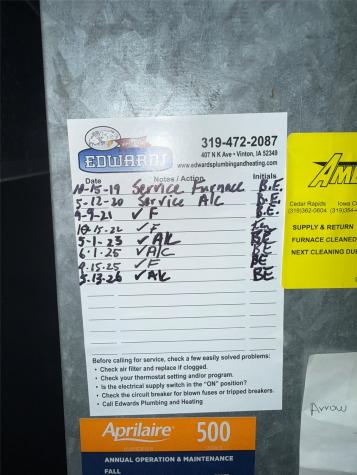 EDWARDS
319-472-2087
407 N K Ave • Vinton, IA 52349
www.edwardsplumbingandheating.com
Date Notes / Action Initials
10-15-19 Service Furnace B.E.
5-12-20 Service A/C B.E.
9-9-21 ✓ F B.E.
10-15-22 ✓ F
5-1-23 ✓ A/C BE
6-1-25 ✓ A/C BE
9-15-25 ✓ F BE
5-13-26 ✓ A/C BE
Before calling for service, check a few easily solved problems:
• Check air filter and replace if clogged.
• Check your thermostat setting and/or program.
• Is the electrical supply switch in the "ON" position?
• Check the circuit breaker for blown fuses or tripped breakers.
• Call Edwards Plumbing and Heating
Aprilaire 500
ANNUAL OPERATION & MAINTENANCE
FALL
AM
Cedar Rapids Iowa C
(319)362-0604 (319)354-
SUPPLY & RETURN
FURNACE CLEANED
NEXT CLEANING DU
Arrow